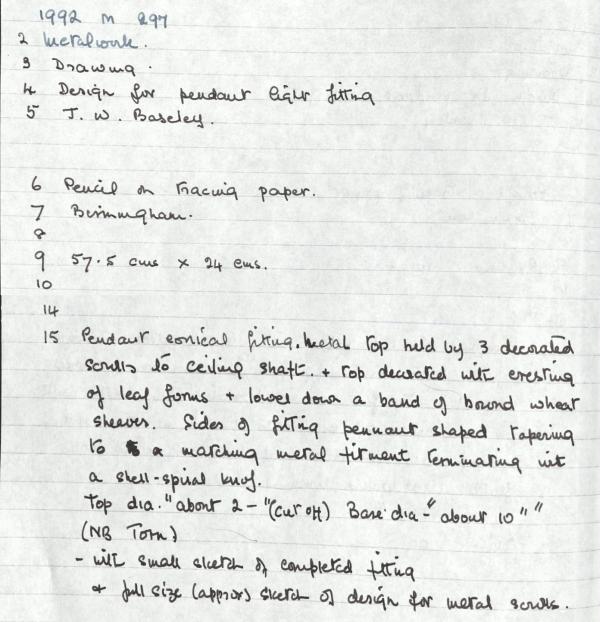 1992 M 297
2 Metalwork.
3 Drawing.
4 Design for pendant light fitting
5 J. W. Baseley.
6 Pencil on tracing paper.
7 Birmingham.
8
9 57.5 cms x 24 cms.
10
14
15 Pendant conical fitting. Metal top held by 3 decorated
scrolls to ceiling shaft. + top decorated with cresting
of leaf forms + lower down a band of bound wheat
sheaves. Sides of fitting pennant shaped tapering
to a matching metal fitment terminating with
a shell-spiral knof.
Top dia. "about 2 - "(cut off) Base dia - "about 10""
(NB Torn)
- with small sketch of completed fitting
+ full size (approx) sketch of design for metal scrolls.